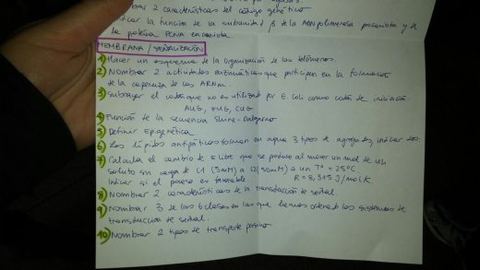 Nombrar 2 características del código genético
Indicar la función de la subunidad β de la ADN polimerasa procariota y de
la proteína PCNA eucariota
MEMBRANA / SEÑALIZACIÓN
1) Hacer un esquema de la organización de los telómeros
2) Nombrar 2 actividades enzimáticas que participan en la formación
de la caperuza de los ARNm
3) Subrayar el codón que no es utilizado por E. coli como codón de iniciación
AUG, GUG, CUG
4) Función de la secuencia Shine-Dalgarno
5) Definir Epigenética
6) Los lípidos antipáticos forman en agua 3 tipos de agregados, indicar dos
7) Calcula el cambio de E libre que se produce al mover un mol de un
soluto sin carga de C1 (5mM) a C2 (50mM) a un Tª = 25ºC
Indicar si el proceso es favorable R = 8,315 J/mol K
8) Nombrar 2 características de la transducción de señal
9) Nombrar 3 de las 6 clases en las que hemos ordenado los mecanismos de
transducción de señal
10) Nombrar 2 tipos de transporte pasivo